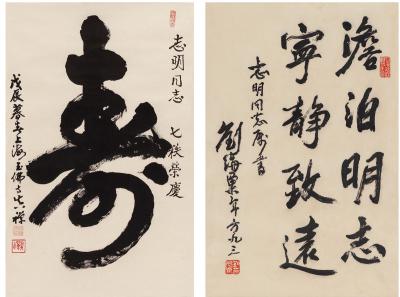 志明同志 七秩榮慶
壽
戊辰春月上海玉佛寺真禪
澹泊明志
寧靜致遠
志明同志屬書
劉海粟年方九三